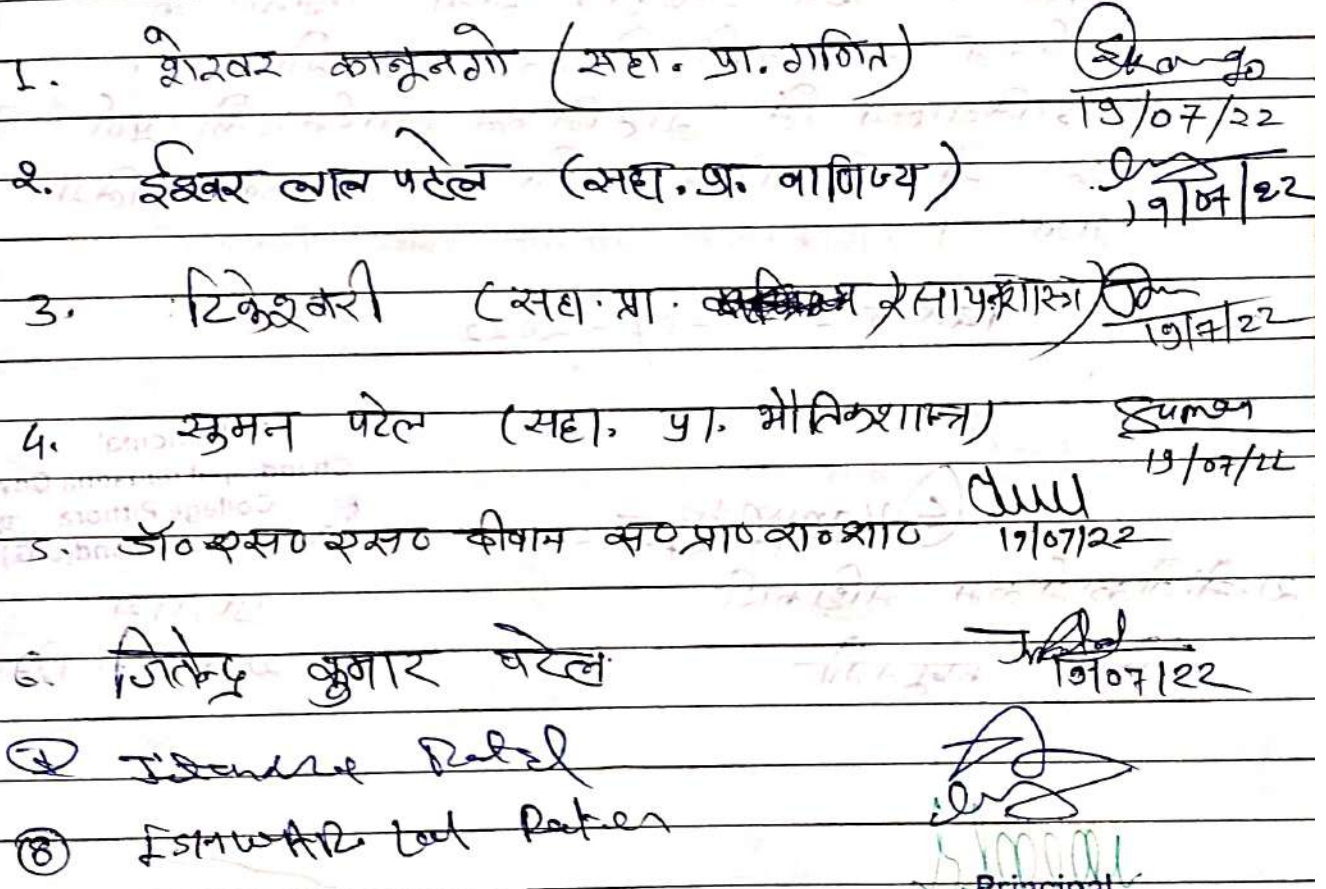 1. शेखर कानूनगो (सहा. प्रा. गणित)
19/07/22
2. ईश्वर लाल पटेल (सहा. प्रा. वाणिज्य)
19/07/22
3. टिकेश्वरी (सहा. प्रा. रसायनशास्त्र)
19/7/22
4. सुमन पटेल (सहा. प्रा. भौतिकशास्त्र) Suman
19/07/22
5. डॉ० एस० एस० दीवान स०प्रा०रा०शा० 19/07/22
6. जितेन्द्र कुमार पटेल
19/07/22
7 Jitendra Patel
8 Eshwar Lal Patel
Principal